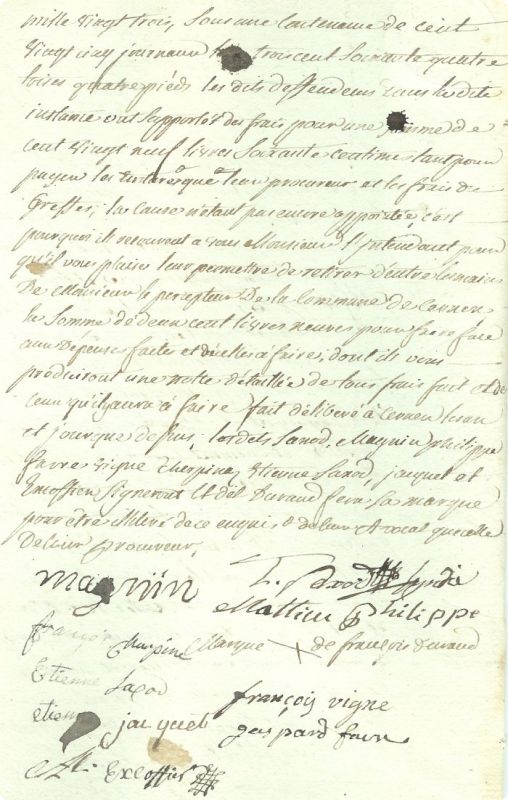 mille vingt trois, sous une contenance de cent
vingt cinq journaux trois cent soixante quatre
toises quatre pieds les dits deffendeurs dans la dite
instance ont supporté des frais pour une somme de
cent vingt neuf livres soixante centimes tant pour
payer les leur procureur et les frais de
Greffes, la cause n'etant pas encore appointée, c'est
pourquoi ils recourent a vous Monsieur l'Intendant pour
qu'il vous plaise leur permettre de retirer d'entre les mains
De Monsieur le percepteur De la Commune de Cernex
la somme de deux cent livres neuves pour faire face
aux Depenses faites et à faire, dont ils vous
produiront une notte détaillée de tous frais fait et de
Ceux qu'il y aura à faire fait délibéré à Cernex les an
et jour que dessus, les dits Sanod, Magnin philippe
favre vigne Chespine Etienne Sanod, jacquet et
Excoffier signeront et del Durand fera sa marque
pour être de ce enquis de leur Avocat que celle
De leur procureur,
magnin
Sindic
Mattieu Philippe
françois Marque de françois Durand
Etienne
françois vigne
etienne jacquet gaspard favre
Excoffier